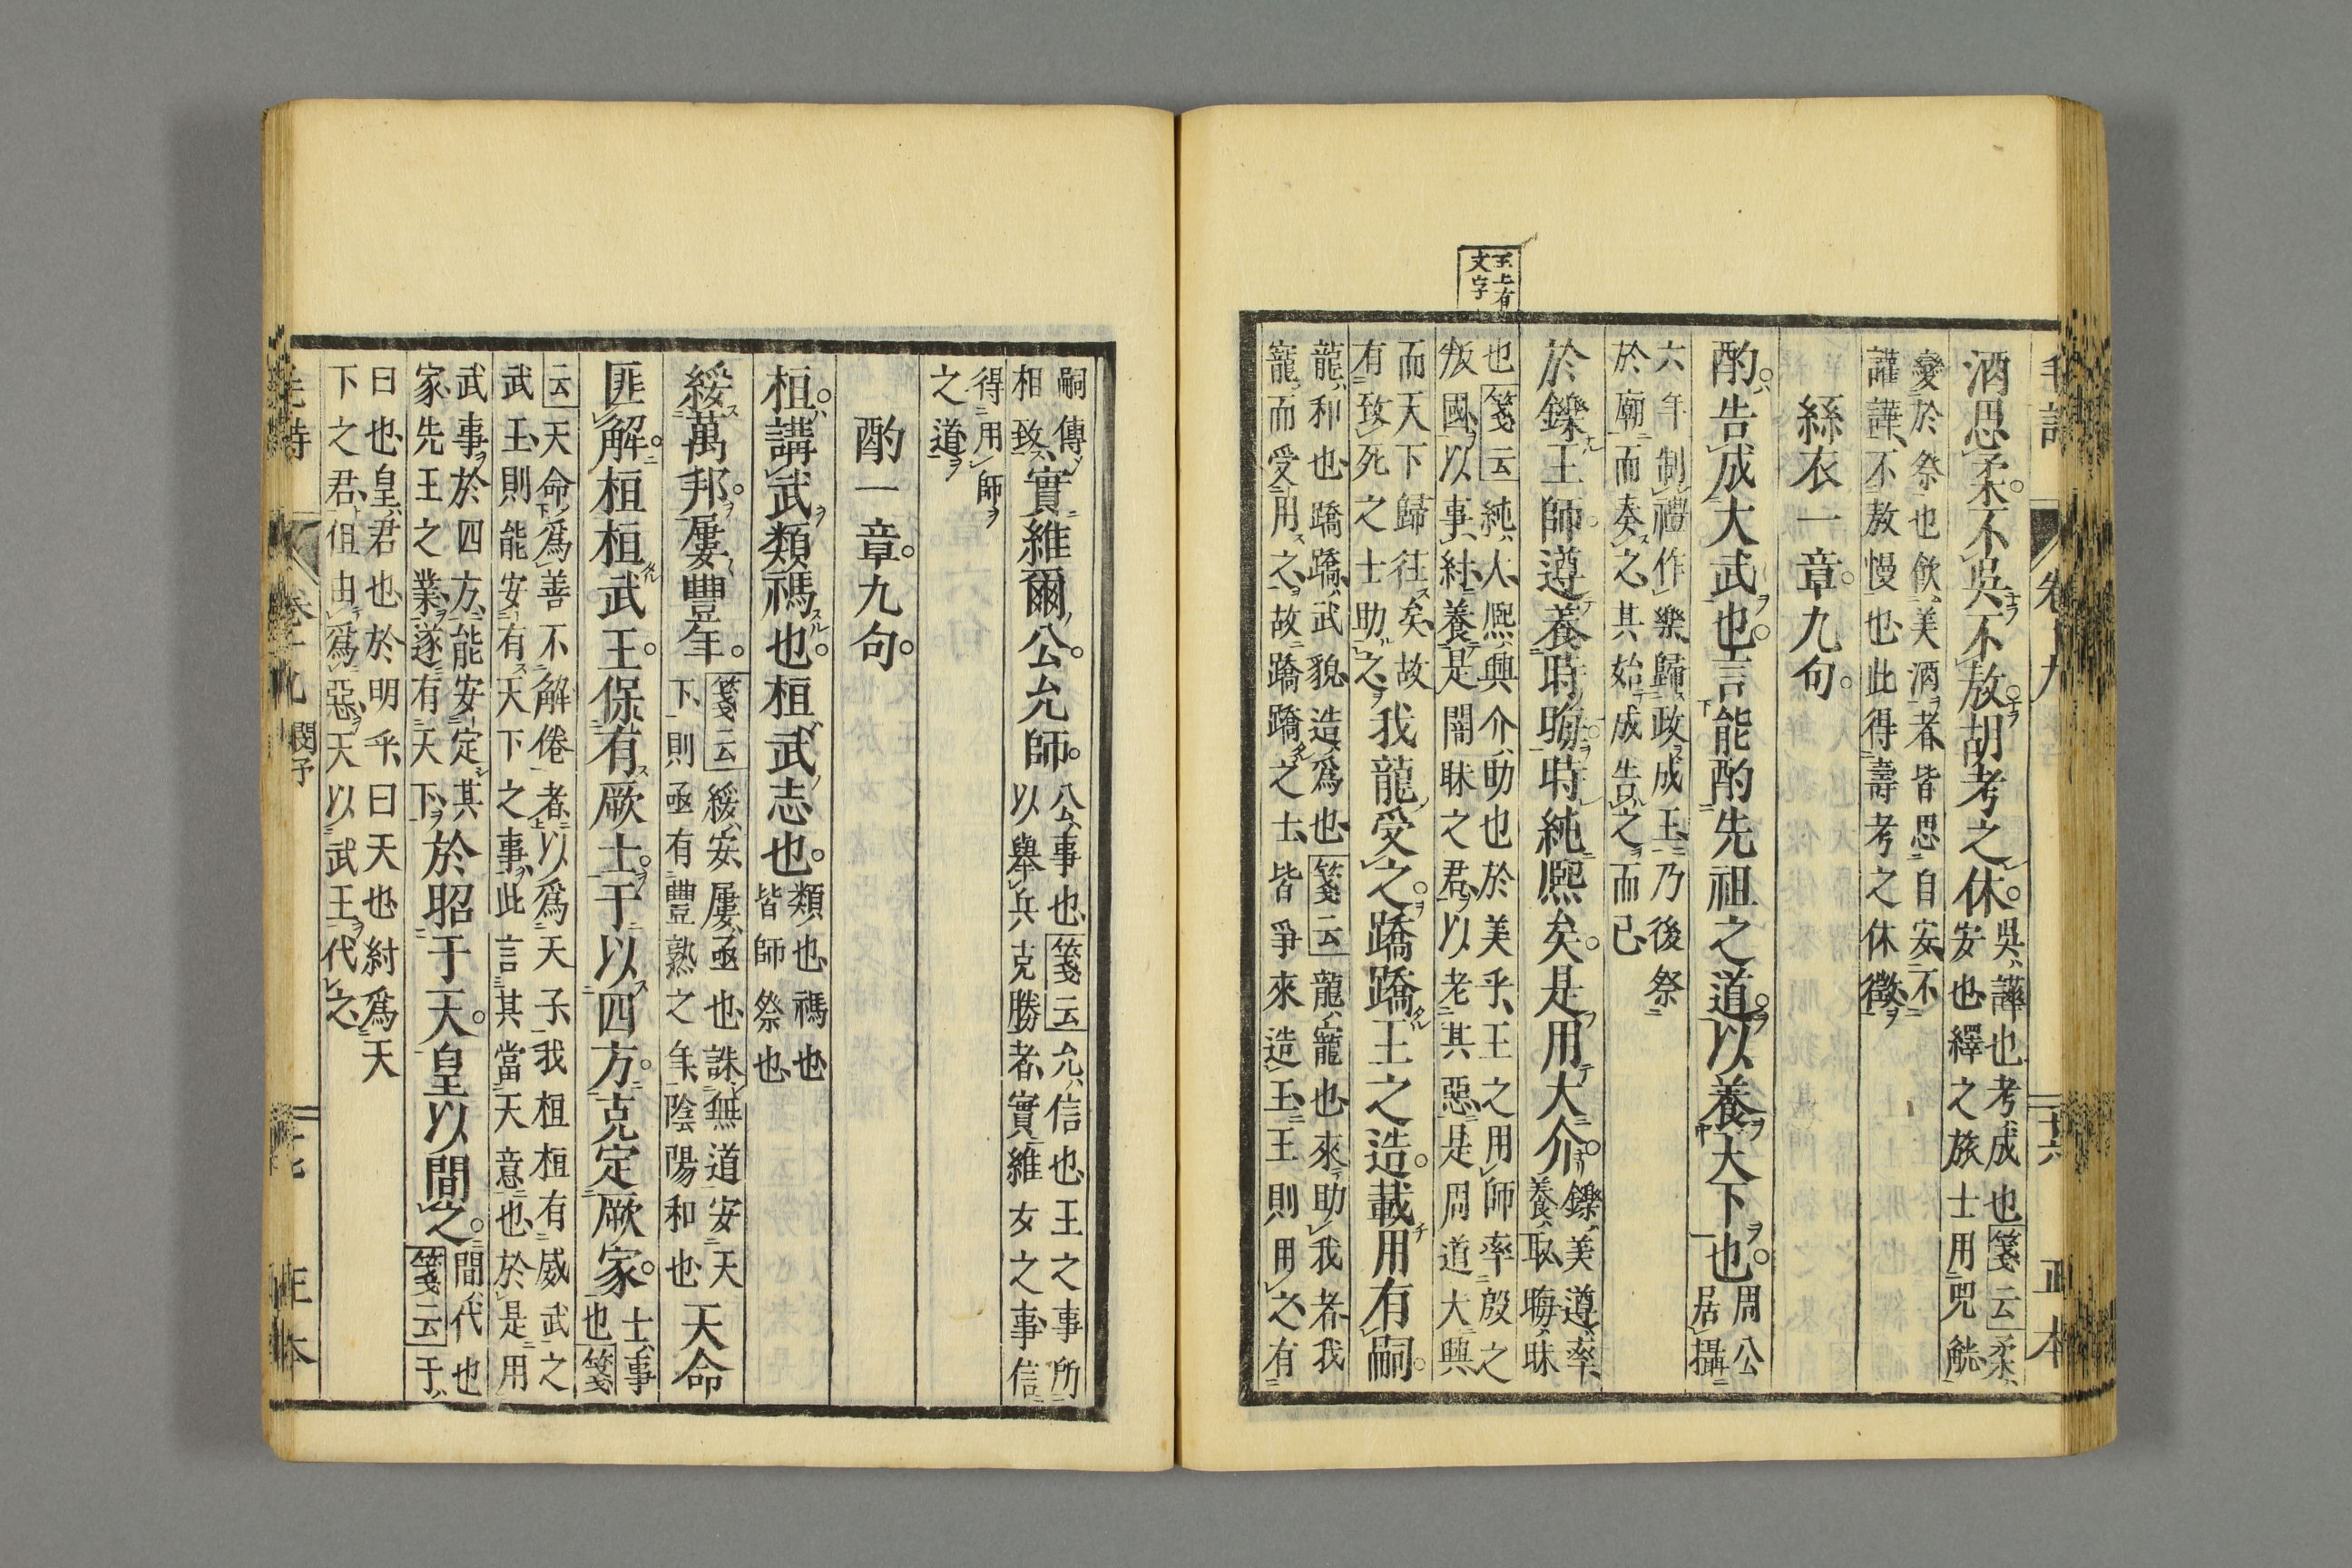 毛詩 卷十九 十六 正本
酒思柔。不吳不敖。胡考之休。吳、譁也、考成也箋云柔、
安也、繹之旅士用兕觥、
變於祭也、飲美酒者、皆思自安、不
讙譁、不敖慢也、此得壽考之休徵、
絲衣一章。九句。
酌。告成大武也。言能酌先祖之道。以養天下也。周公
居攝
六年制禮作樂、歸政成王、乃後祭
於廟而奏之、其始成告之而已
於鑠王師。遵養時晦。時純熙矣。是用大介。鑠、美、遵、率、
養、取、晦、昧
也、箋云純、大、熙、興、介、助也、於美乎、王之用師、率殷之
叛國、以事紂、養是闇昧之君、以老其惡、是周道大興
而天下歸往矣、故
有致死之士助之、
我龍受之。蹻蹻王之造。載用有嗣。
龍、和也、蹻蹻、武貌、造、爲也、箋云龍、寵也、來助我者、我
寵而受用之、故蹻蹻之士、皆爭來造王、王則用之、有
王上有
文字
嗣傳
相致、
實維爾公。允師。公、事也、箋云允、信也、王之事所
以舉兵克勝者、實維女之事信
得用師
之道、
酌一章。九句。
桓。講武類禡也。桓武志也。類也、禡也、
皆師祭也、
綏萬邦。屢豐年。箋云綏、安、屢、亟也、誅無道安天
下、則亟有豐熟之年、陰陽和也、
天命
匪解。桓桓武王。保有厥士。于以四方。克定厥家。士、事
也、箋
云天命爲善不解倦者、以爲天子、我桓桓有威武之
武王、則能安有天下之事、此言其當天意也、於是用
武事於四方、能安定其
家先王之業、遂有天下、
於昭于天。皇以間之。間、代也
箋云于、
曰也、皇、君也、於明乎、曰天也、紂爲天
下之君、但由爲惡、天以武王代之、
毛詩 卷十九 閔予 十七 正本